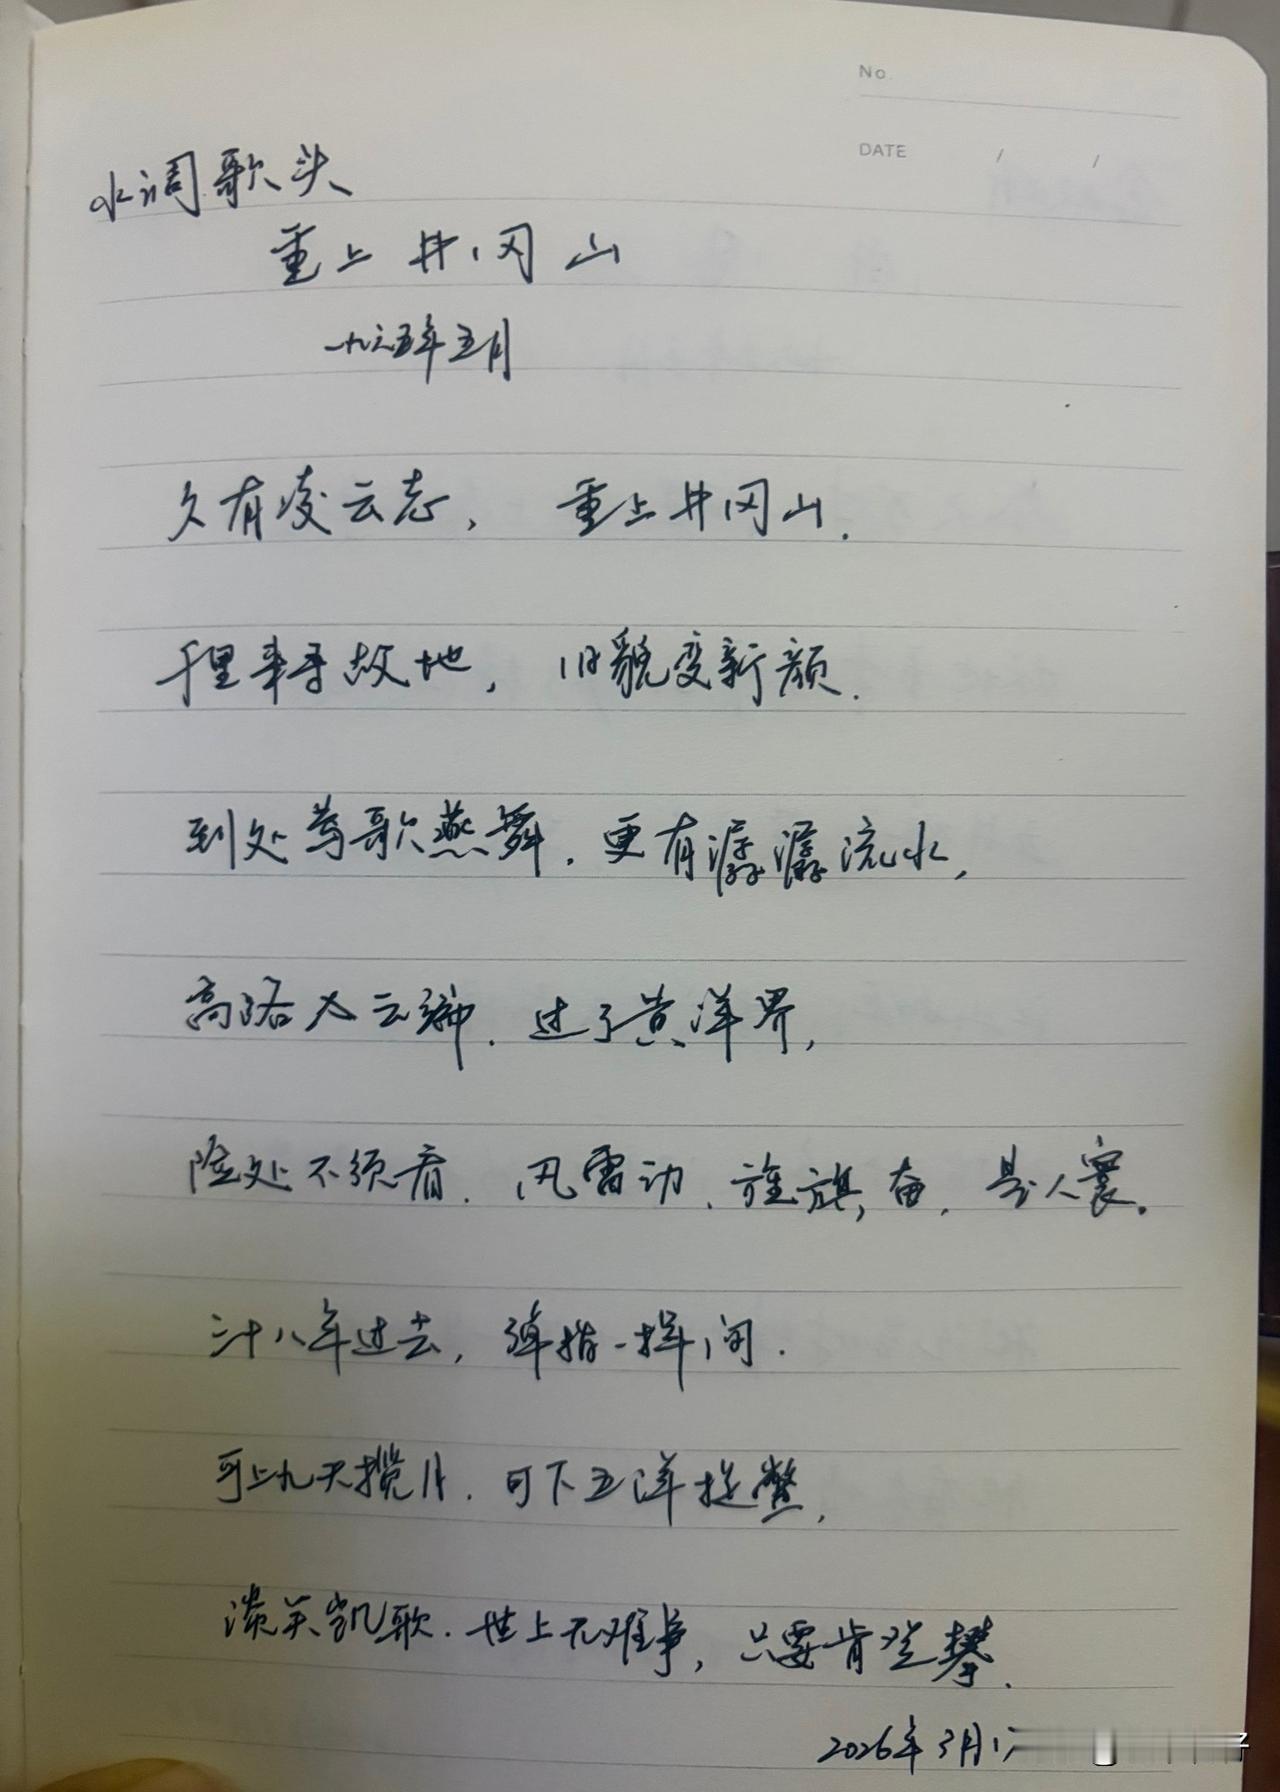 No.
DATE / /
水调歌头
重上井冈山
一九六五年五月
久有凌云志，重上井冈山.
千里来寻故地，旧貌变新颜.
到处莺歌燕舞.更有潺潺流水，
高路入云端.过了黄洋界，
险处不须看.风雷动，旌旗奋，是人寰。
三十八年过去，弹指一挥间.
可上九天揽月.可下五洋捉鳖，
谈笑凯歌.世上无难事，只要肯登攀.
2026年3月